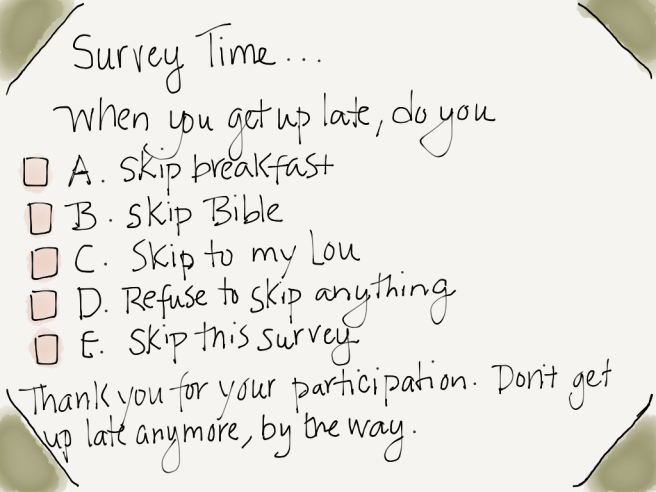 Survey Time...
When you get up late, do you
A. Skip breakfast
B. Skip Bible
C. Skip to my Lou
D. Refuse to skip anything
E. Skip this survey
Thank you for your participation. Don't get
up late anymore, by the way.